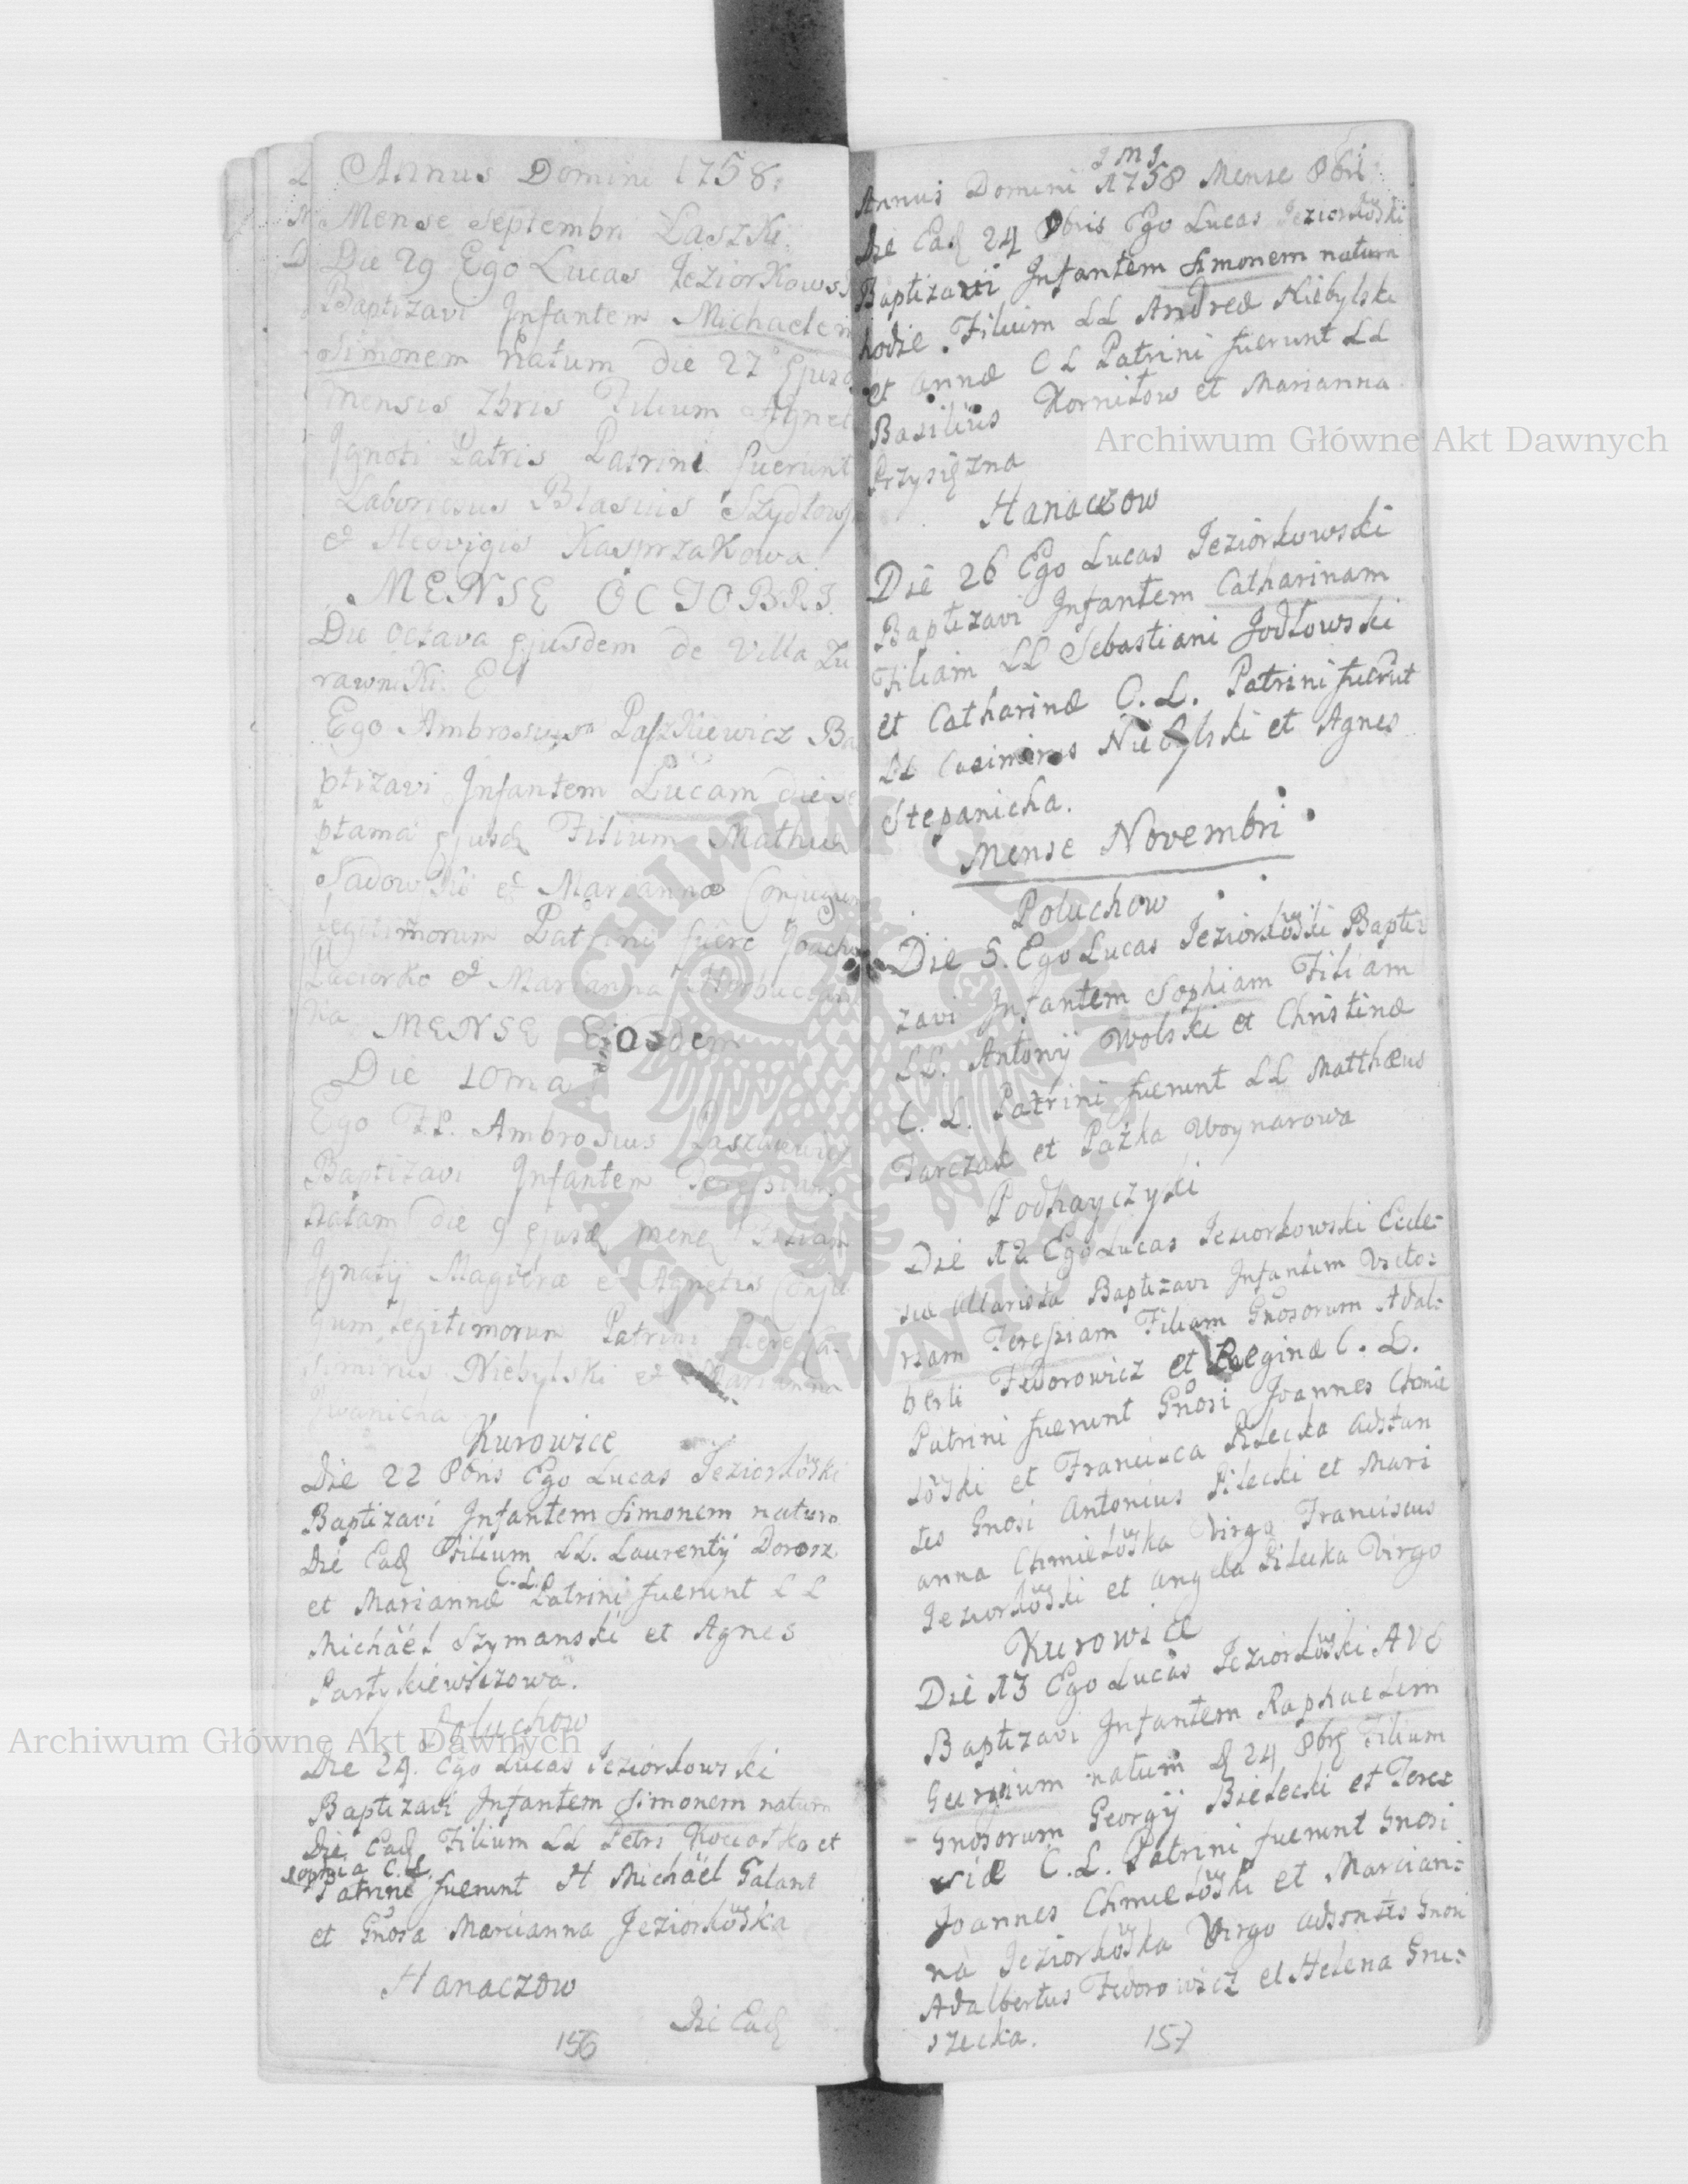 Annus Domini 1758.
Mense Septembri Laszki.
Die 29 Ego Lucas Jeziorkows
Baptizavi Infantem Michaelem
Simonem Natum die 27 Ejusd
mensis 7bris Filium Agnet
Ignoti Patris Patrini fuerunt
Laboriosus Blasius Szydlows
et Hedvigis Kasprzakowa.
MENSE OCTOBRI.
Die Octava Ejusdem de Villa Zu
rawniki
Ego Ambrosius Paszkiewicz Ba
ptizavi Infantem Lucam die se
ptama ejusd Filium Mathei
Sadowski et Marianna Conjugum
legitimorum Patrini fuere
et Marianna
MENSE Eiosdem
Die 10ma
Ego Ambrosius Paszkiewicz
Baptizavi Infantem Teressiam
Natam die 9 ejusd Filiam
Ignatij et Agnetis Conju
gum legitimorum Patrini fuere Ca-
simirus Niebylski et Marianna
Iwanicha
Kurowice
Die 22 8bris Ego Lucas Jeziorkowski
Baptizavi Infantem Simonem natum
Die Ead Filium LL. Laurentij Dorosz
et Mariannæ C.L. Patrini fuerunt LL
Michäel Szymanski et Agnes
Partykiewiczowa.
Poluchow
Die 24. Ego Lucas Jeziorkowski
Baptizavi Infantem Simonem natum
Die Ead Filium LL Petri et
Sophia C.L.
Patrini fuerunt H Michäel Galant
et Gnosa Marcianna Jeziorkowska
Hanaczow
Die Ead
156
J M J
Annus Domini 1758 Mense 8bri
Die Ead 24 8bris Ego Lucas Jeziorkowski
Baptizavi Infantem Simonem natum
hodie. Filium LL Andreæ Niebylski
et Annæ C L Patrini fuerunt LL
Basilius Kornitow et Marianna
Przysięzna
Hanaczow
Die 26 Ego Lucas Jeziorkowski
Baptizavi Infantem Catharinam
Filiam LL Sebastiani Jodłowski
et Catharinæ C. L. Patrini fuerut
LL Casimirus Niebylski et Agnes
Stepanicha.
Mense Novembri
Poluchow
Die 5. Ego Lucas Jeziorkowski Bapti
zavi Infantem Sophiam Filiam
LL. Antonij Wolski et Christinæ
C. L. Patrini fuerunt LL Matthæus
Tarczak et Pazka Woynarowa
Podhayczyki
Die 12 Ego Lucas Jeziorkowski Eccle-
siæ Altarista Baptizavi Infantem Victo-
riam Teresiam Filiam Gnosorum Adal-
berti Fedorowicz et Reginæ C. L.
Patrini fuerunt Gnosi Joannes Chmie
lowski et Francisca Pilecka adstan
tes Gnosi Antonius Pilecki et Mari
anna Chmielowska Virgo Franciscus
Jeziorkowski et Angela Pilecka Virgo
Kurowice
Die 13 Ego Lucas Jeziorkowski AVE
Baptizavi Infantem Raphaelem
natum d 24 8bris Filium
Gnosorum Georgij Bielecki et Tere-
siæ C. L. Patrini fuerunt Gnosi
Joannes Chmielowski et Marcian-
na Jeziorkowska Virgo adsentes Gnosi
Adalbertus Fedorowicz et Helena Gru-
szecka.
157
Archiwum Główne Akt Dawnych
Archiwum Główne Akt Dawnych
ARCHIWUM GŁÓWNE AKT DAWNYCH